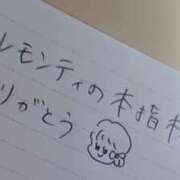 レモンティの本指
りがとう